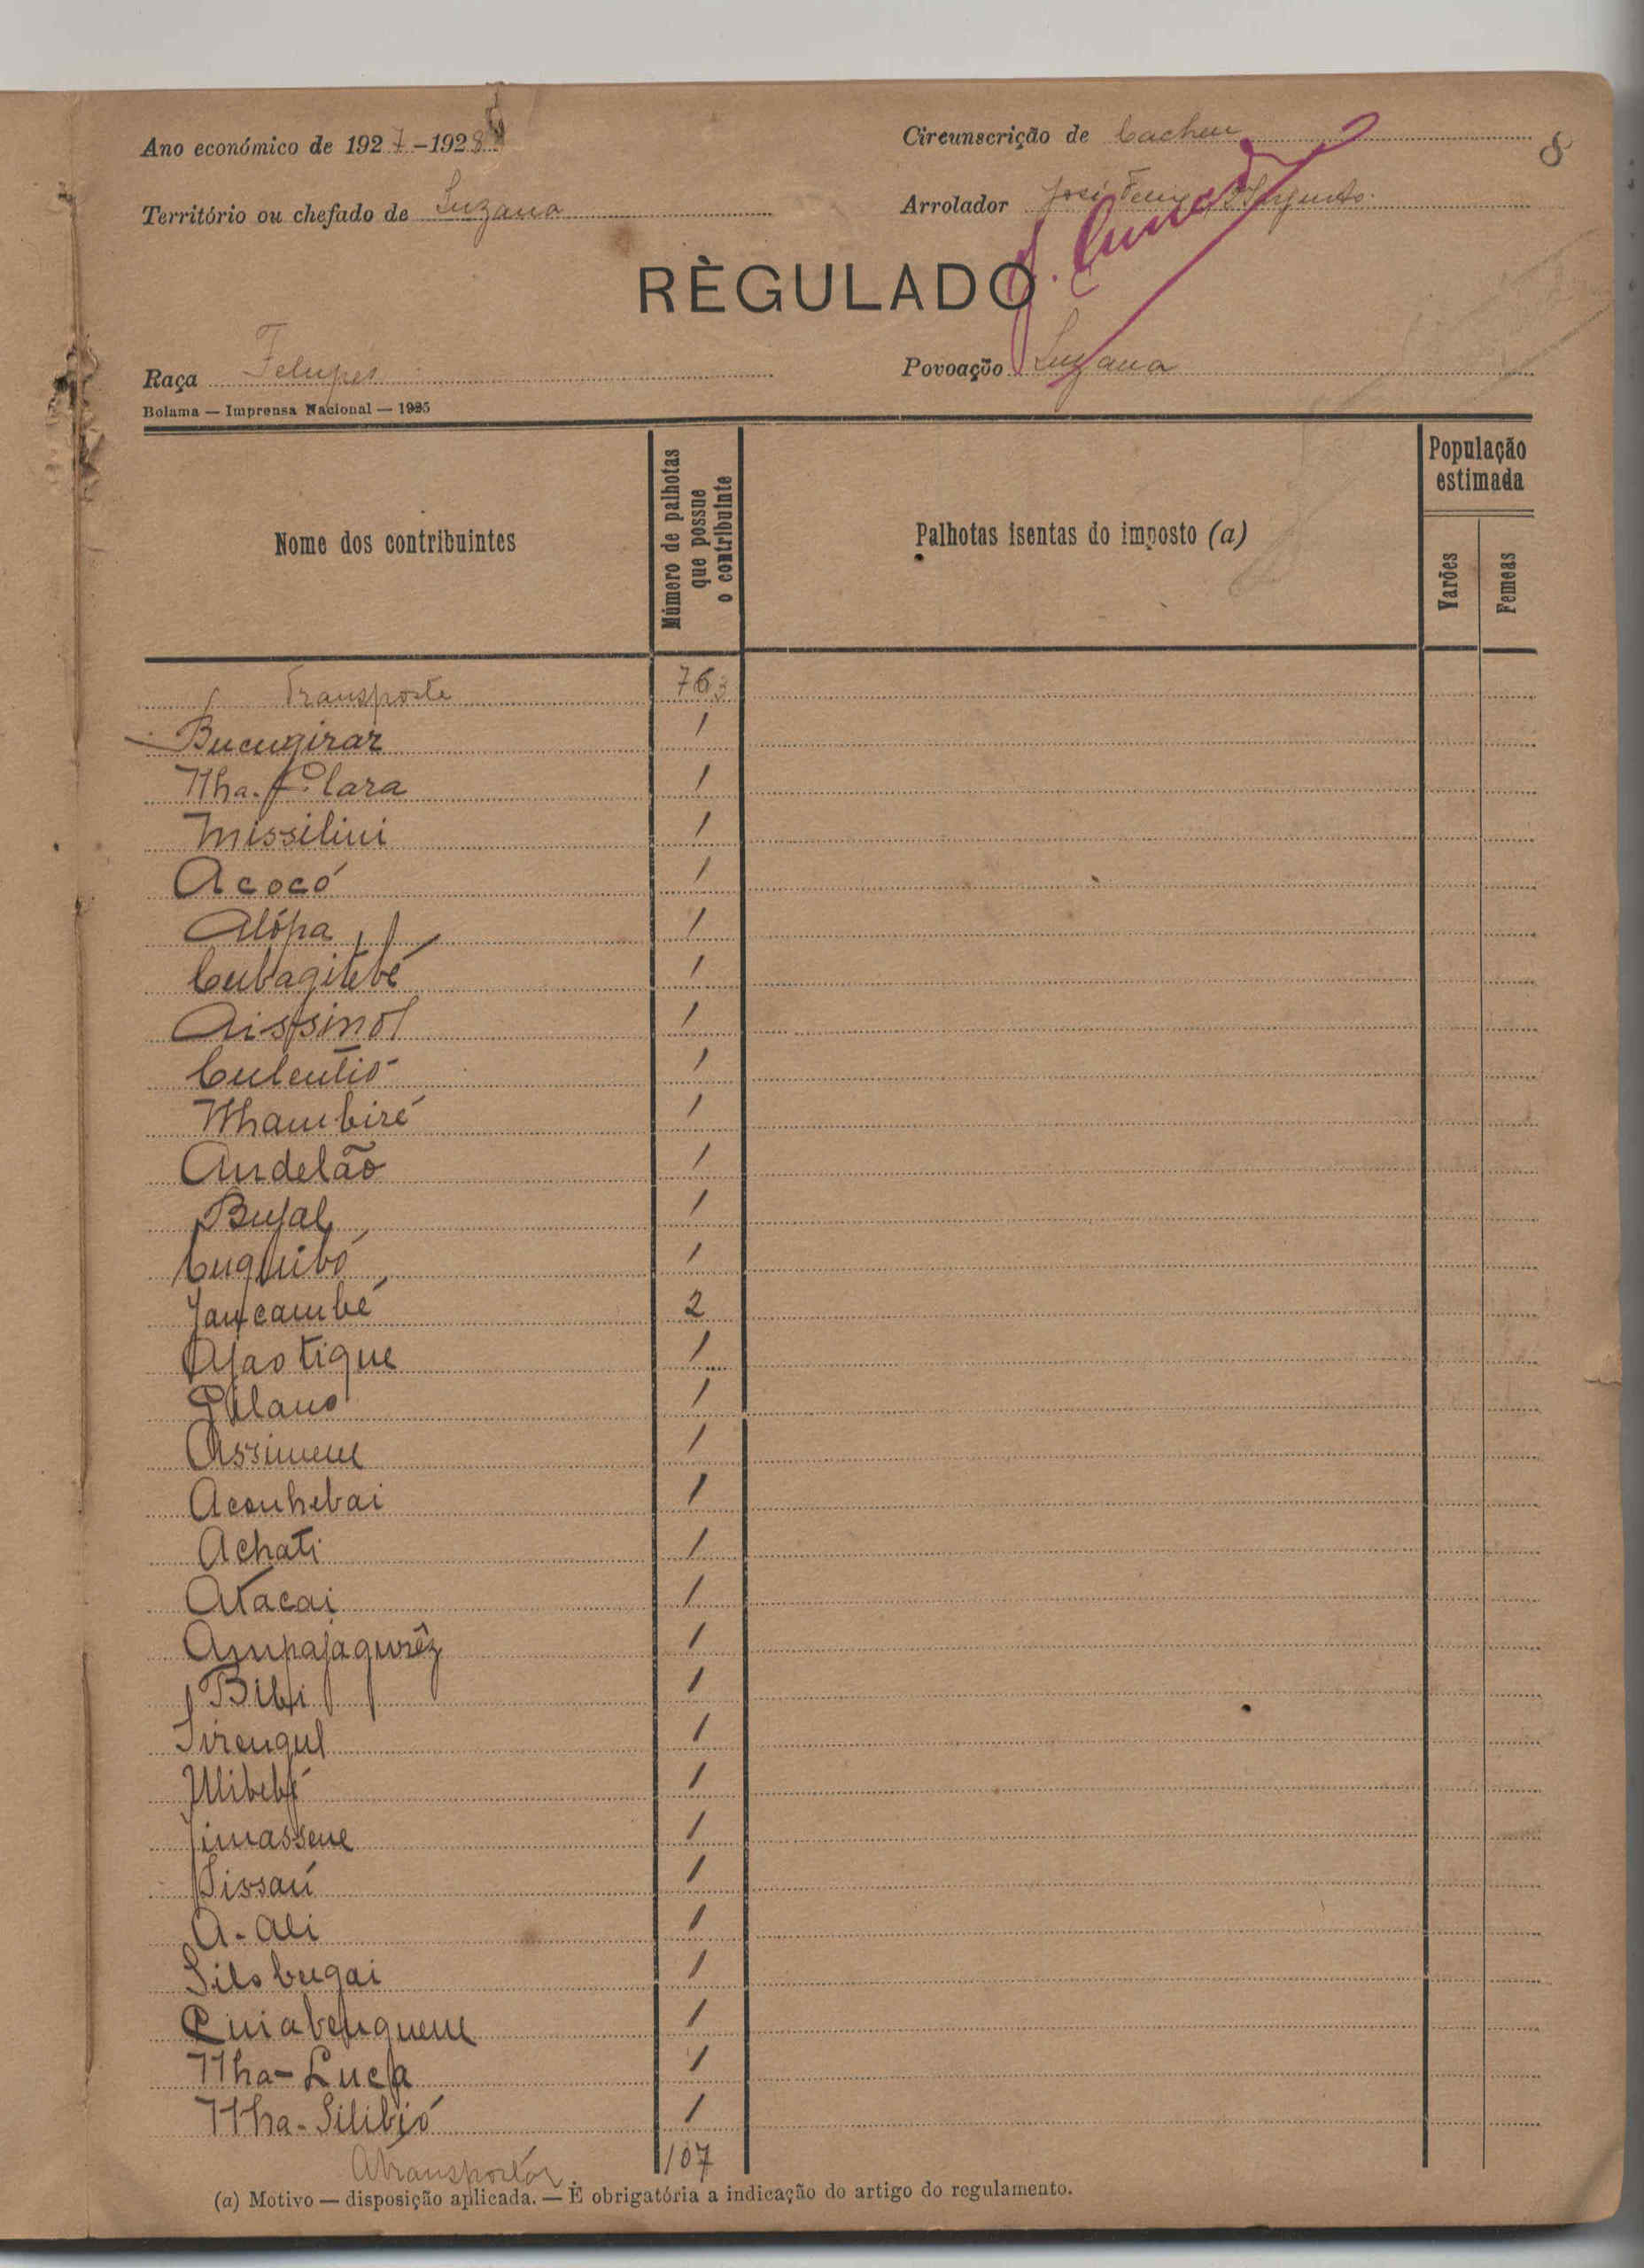 Ano económico de 1927-1928
Circunscrição de Cacheu
8
Território ou chefado de Suzana
Arrolador José
RÈGULADO
Raça Felupes
Povoação Suzana
Bolama — Imprensa Nacional — 1925
Nome dos contribuintes
Número de palhotas
que possue
o contribuinte
Palhotas isentas do imposto (a)
População
estimada
Varões
Femeas
Transporte 763
Bucugirar 1
Nha-Clara 1
Missilini 1
Acocó 1
Alópa 1
Cubagitebé 1
Aissinol 1
Culeutió 1
Nhambiré 1
Andelão 1
Bujal 1
Cuquibó 1
Jancambé 2
Ajaotique 1
Gilano 1
Assimene 1
Acanhebai 1
Achati 1
Atacai 1
Ampajaqurêz 1
Bibi 1
Sirengul 1
Ulibebé 1
Jimassene 1
Sissaú 1
A-Ali 1
Silobugai 1
Quiabenguene 1
Nha-Luca 1
Nha-Silibió 1
A transportar 107
(a) Motivo — disposição aplicada. — É obrigatória a indicação do artigo do regulamento.